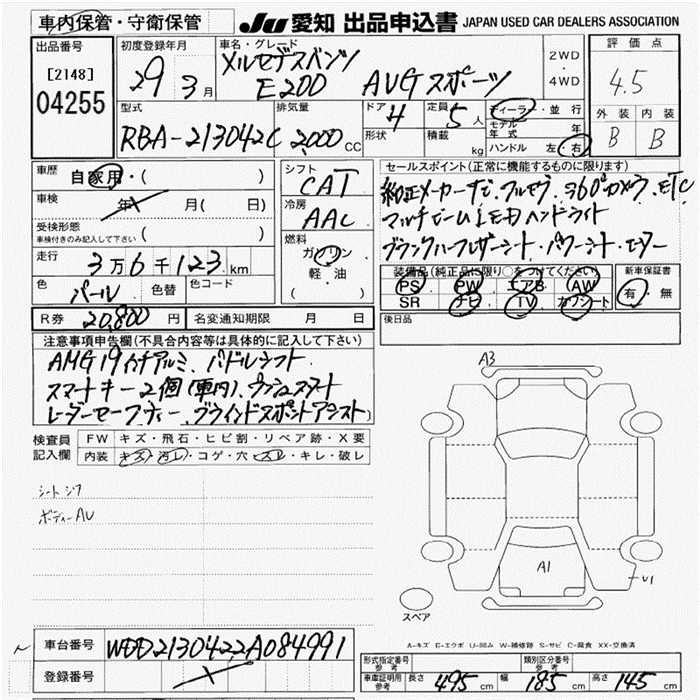 車内保管・守衛保管
JU 愛知 出品申込書 JAPAN USED CAR DEALERS ASSOCIATION
出品番号
[2148]
04255
初度登録年月
29 3月
車名・グレード
メルセデスベンツ
E200 AVGスポーツ
2WD
4WD
評価点
4.5
外装 内装
B B
型式
RBA-213042C
排気量
2,000 CC
ドア 4
形状
定員 5 人
積載 kg
ディーラー・並行
モデル年式 年
ハンドル 左 右
車歴
自家用・( )
車検
年 月( 日)
受検形態
車検付きのみ記入して下さい ( )
走行
3万6千123km
色 パール 色替 色コード
シフト
CAT
冷房
AAC
燃料
ガソリン
軽・油
( )
セールスポイント(正常に機能するものに限ります)
純正メーカーナビ、フルセグ、360°カメラ、ETC
マルチビームLEDヘッドライト
ブラックハーフレザーシート・パワーシート・ヒーター
装備品(純正品に限り○をつけてください)
PS PW エアB AW
SR ナビ TV カワシート
新車保証書
有・無
R券 20,800円 名変通知期限 月 日
後日品
注意事項申告欄(不具合内容等は具体的に記入して下さい)
AMG19インチアルミ、パドルシフト、
スマートキー2個(車内)、プッシュスタート
レーダーセーフティー、ブラインドスポットアシスト
検査員
記入欄
FW キズ・飛石・ヒビ割・リペア跡・X要
内装 キズ・汚レ・コゲ・穴・スレ・キレ・破レ
シートシワ
ボディーAU
A3
A1
U1
スペア
A-キズ E-エクボ U-凹み W-補修跡 S-サビ C-腐食 XX-交換済
車台番号 WDD2130422A084991
登録番号
型式指定番号
参考
類別区分番号
参考
車庫証明
参考
長さ 495cm 幅 185cm 高さ 145cm